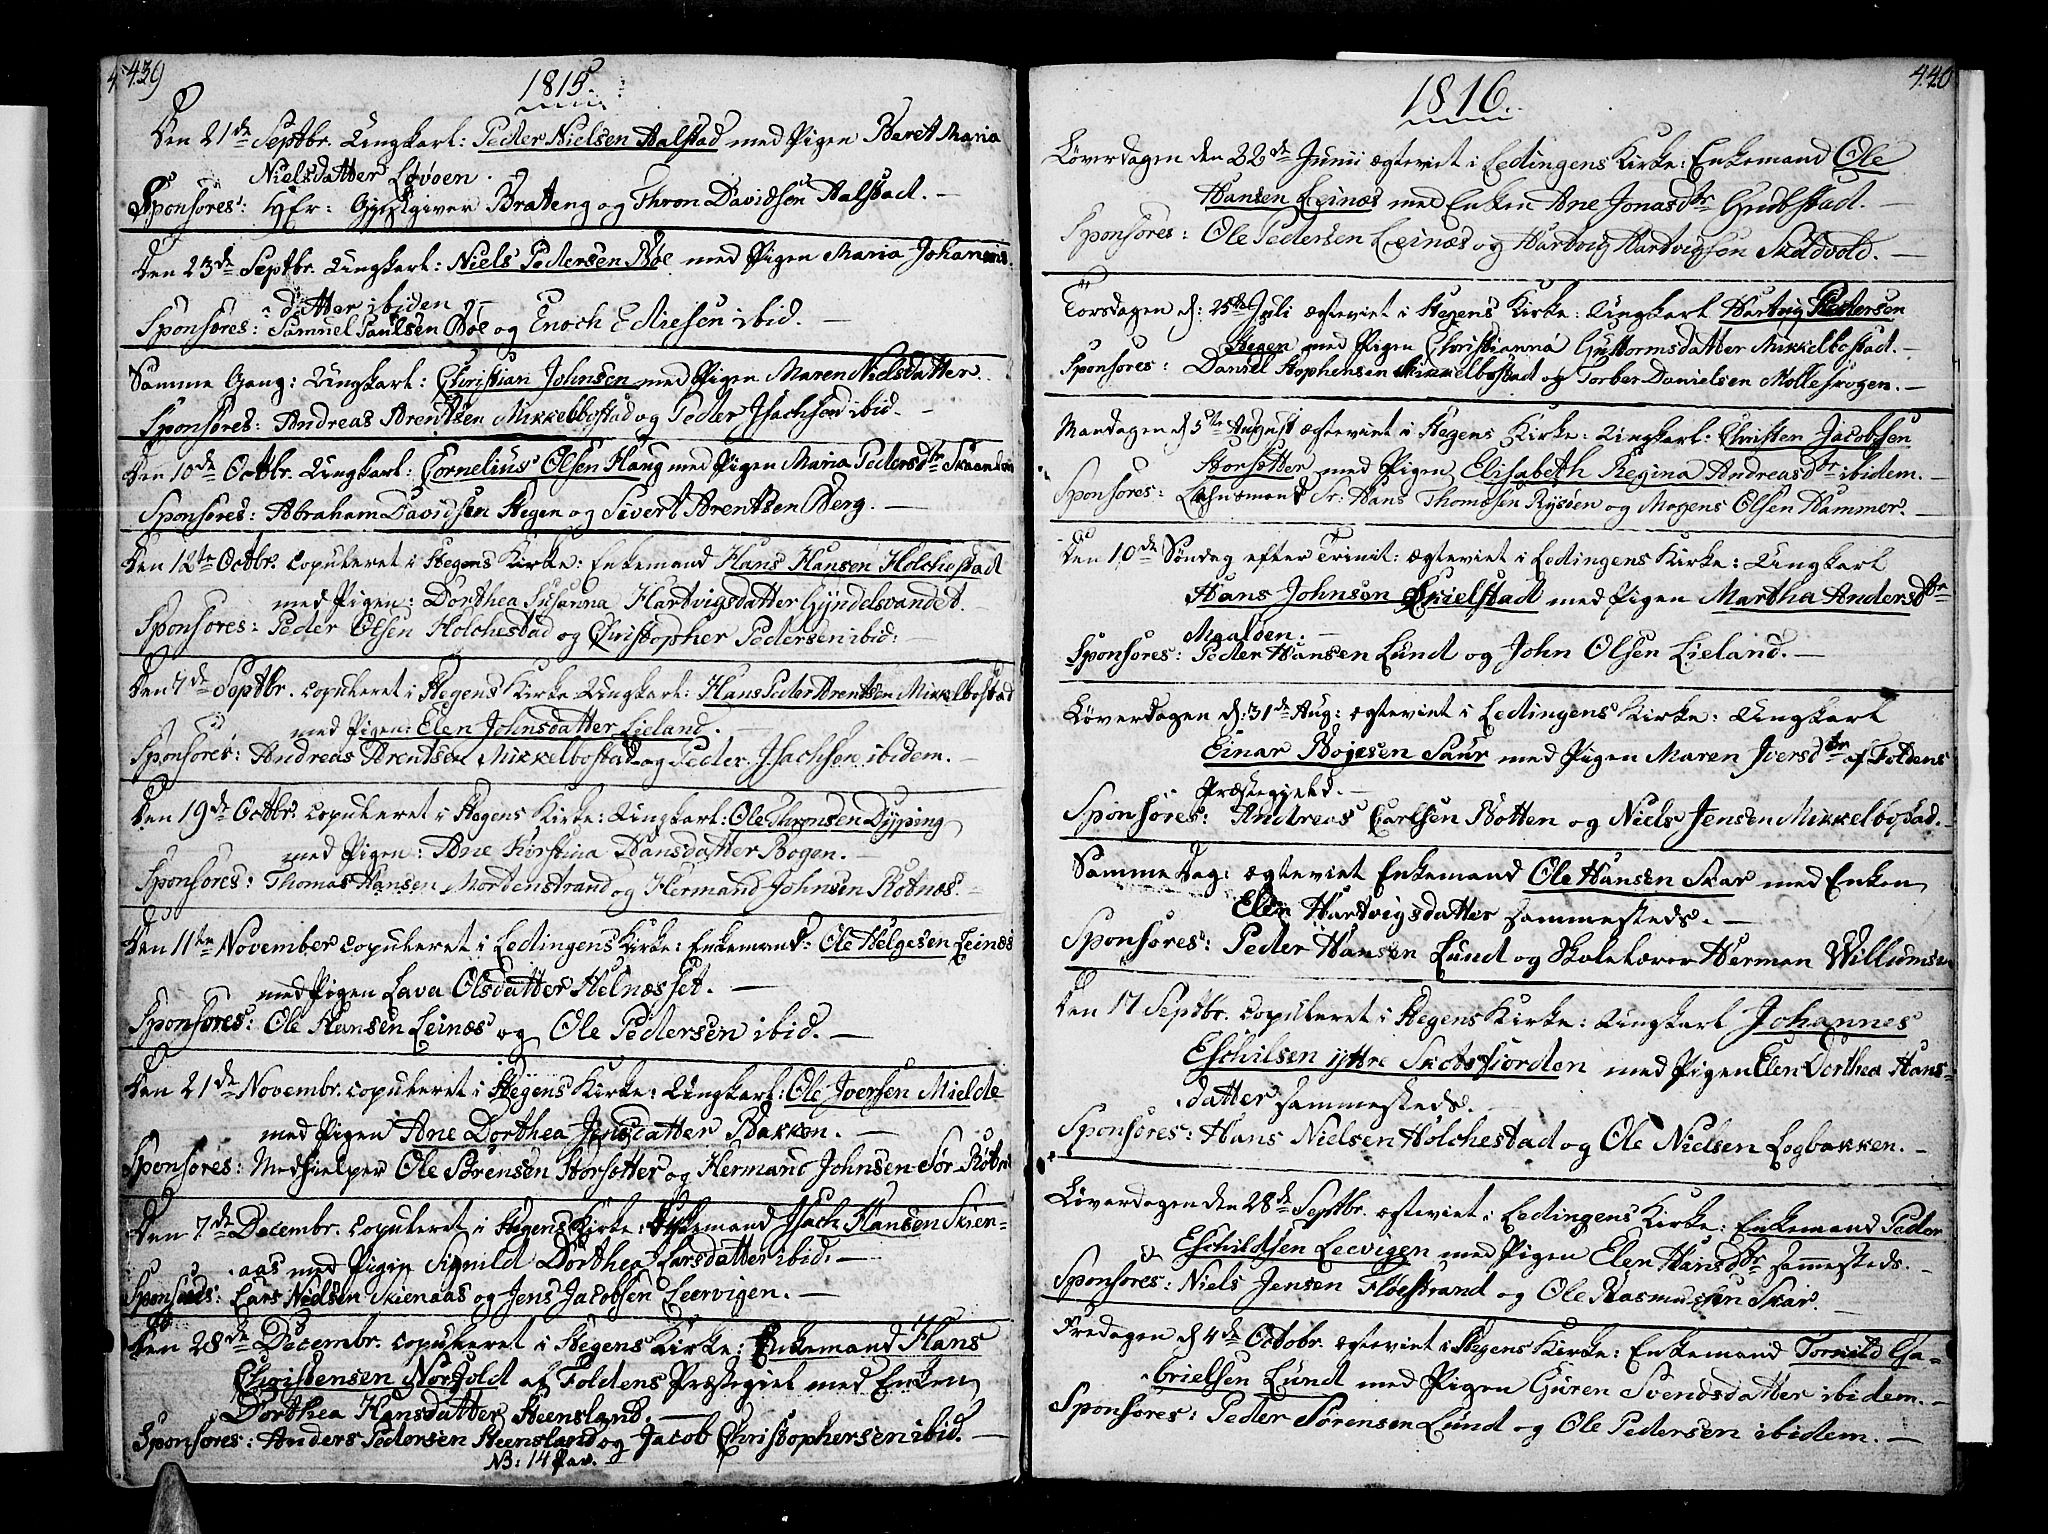 439
1815.
Den 21de Septbr. Ungkarl: Peder Nielsen Aalstad med Pigen Beret Maria
Nielsdatter Løvøen.
Sponsores: Hr: Gjestgiver Brateng og Thron Davidsen Aalstad.
Den 23de Septbr. Ungkarl: Niels Pedersen Bøe med Pigen Maria Johannis
datter ibiden
Sponsores: Samuel Paulsen Bøe og Enoch Ediesen ibid.
Samme Gang: Ungkarl: Christian Johnsen med Pigen Maren Nielsdatter
Sponsores: Andreas Arentsen Mikkelbostad og Peder Isachsen ibid.
Den 10de Octbr. Ungkarl: Cornelius Olsen Haug med Pigen Maria Pedersdtr
Sponsores: Abraham Davidsen Stegen og Sivert Arentsen Berg.
Den 12te Octbr. copuleret i Stegens Kirke: Enkemand Hans Hansen Holchestad
med Pigen: Dorthea Susanna Hartvigsdatter Gyndelsvandet.
Sponsores: Peder Olsen Holchestad og Christopher Pedersen ibid:
Den 7de Septbr. copuleret i Stegens Kirke Ungkarl: Hans Peder Arentsen Mikkelbostad
med Pigen: Elen Johnsdatter Lieland.
Sponsores: Andreas Arentsen Mikkelbostad og Peder Isachsen ibidem.
Den 19de Octbr. copuleret i Stegens Kirke: Ungkarl: Ole Thronsen Dypping
med Pigen: Ane Kirstina Hansdatter Bogen.
Sponsores: Thomas Hansen Mordenstrand og Hermand Johnsen Rotnæs
Den 11te November copuleret i Lødingens Kirke: Enkemand: Ole Helgesen Leinæs
med Pigen Lava Olsdatter Helnæsset.
Sponsores: Ole Hansen Leinæs og Ole Pedersen ibid.
Den 21de Novembr. copuleret i Stegens Kirke: Ungkarl: Ole Iversen Mielde
med Pigen Ane Dorthea Jensdatter Bakken.
Sponsores: Medhielper Ole Sørensen Storsætter og Hermand Johnsen Sør-
Den 7de Decembr. copuleret i Stegens Kirke: Enkemand Isach Hansen Skien-
aas med Pigen Signild Dorthea Larsdatter ibid:
Sponsores: Lars Nielsen Skienaas og Jens Jacobsen Leervigen.
Den 28de Decembr. copuleret i Stegens Kirke: Enkemand Hans
Christensen Norfold af Foldens Præstegiel med Enken
Dorthea Hansdatter Steensland.
Sponsores: Anders Pedersen Steensland og Jacob Christophersen ibid.
NB: 14 Par.
440
1816.
Løverdagen den 22de Junii ægteviet i Lødingens Kirke: Enkemand Ole
Hansen Leinæs med Enken Ane Jonasdtr Grubstad.
Sponsores: Ole Pedersen Leinæs og Hartvig Hartvigsen Skidvold.
Torsdagen d: 25de Juli ægteviet i Stegens Kirke: Ungkarl Hartvig Pedersen
Stegen med Pigen Christianna Guttormsdatter Mikkelbostad.
Sponsores: Daniel Stephensen Mikkelbostad og Torber Danielsen Molleskogen.
Mandagen d 5te August ægteviet i Stegens Kirke: Ungkarl: Christen Jacobsen
Storsætter med Pigen Elisabeth Regina Andreasdtr ibidem.
Sponsores: Lehnsmand Sr: Hans Thomesen Rysøen og Mogens Olsen Hammer.
Den 10de Søndag efter Trinit: ægteviet i Lødingens Kirke: Ungkarl
Hans Johnsen Skielstad med Pigen Martha Andersdtr
Maalden.
Sponsores: Peder Hansen Lund og John Olsen Lieland.
Løverdagen d: 31de Aug: ægteviet i Lødingens Kirke: Ungkarl
Einar Bojesen Saur med Pigen Maren Iversdtr af Foldens
Præstegield.
Sponsores: Andreas Carlsen Botten og Niels Jensen Mikkelbostad.
Samme Dag: ægteviet Enkemand Ole Hansen Skar med Enken
Elen Hartvigsdatter sammesteds.
Sponsores: Peder Hansen Lund og Skolelærer Herman Willumsen
Den 17 Septbr. copuleret i Stegens Kirke: Ungkarl Johannes
Eschilsen yttre Skotsfiorden med Pigen Elen Dorthea Hans-
datter sammesteds.
Sponsores: Hans Nielsen Holchestad og Ole Nielsen Logbakken.
Løverdagen den 28de Septbr. ægteviet i Lødingens Kirke: Enkemand Peder
Eschildsen Leevigen med Pigen Elen Hansdtr sammesteds.
Sponsores: Niels Jensen Fløestrand og Ole Rasmussen Skar.
Fredagen d 4de Octobr. ægteviet i Stegens Kirke: Enkemand Tornild Ga-
brielsen Lund med Pigen Guren Svendsdatter ibidem.
Sponsores: Peder Sørensen Lund og Ole Pedersen ibidem.